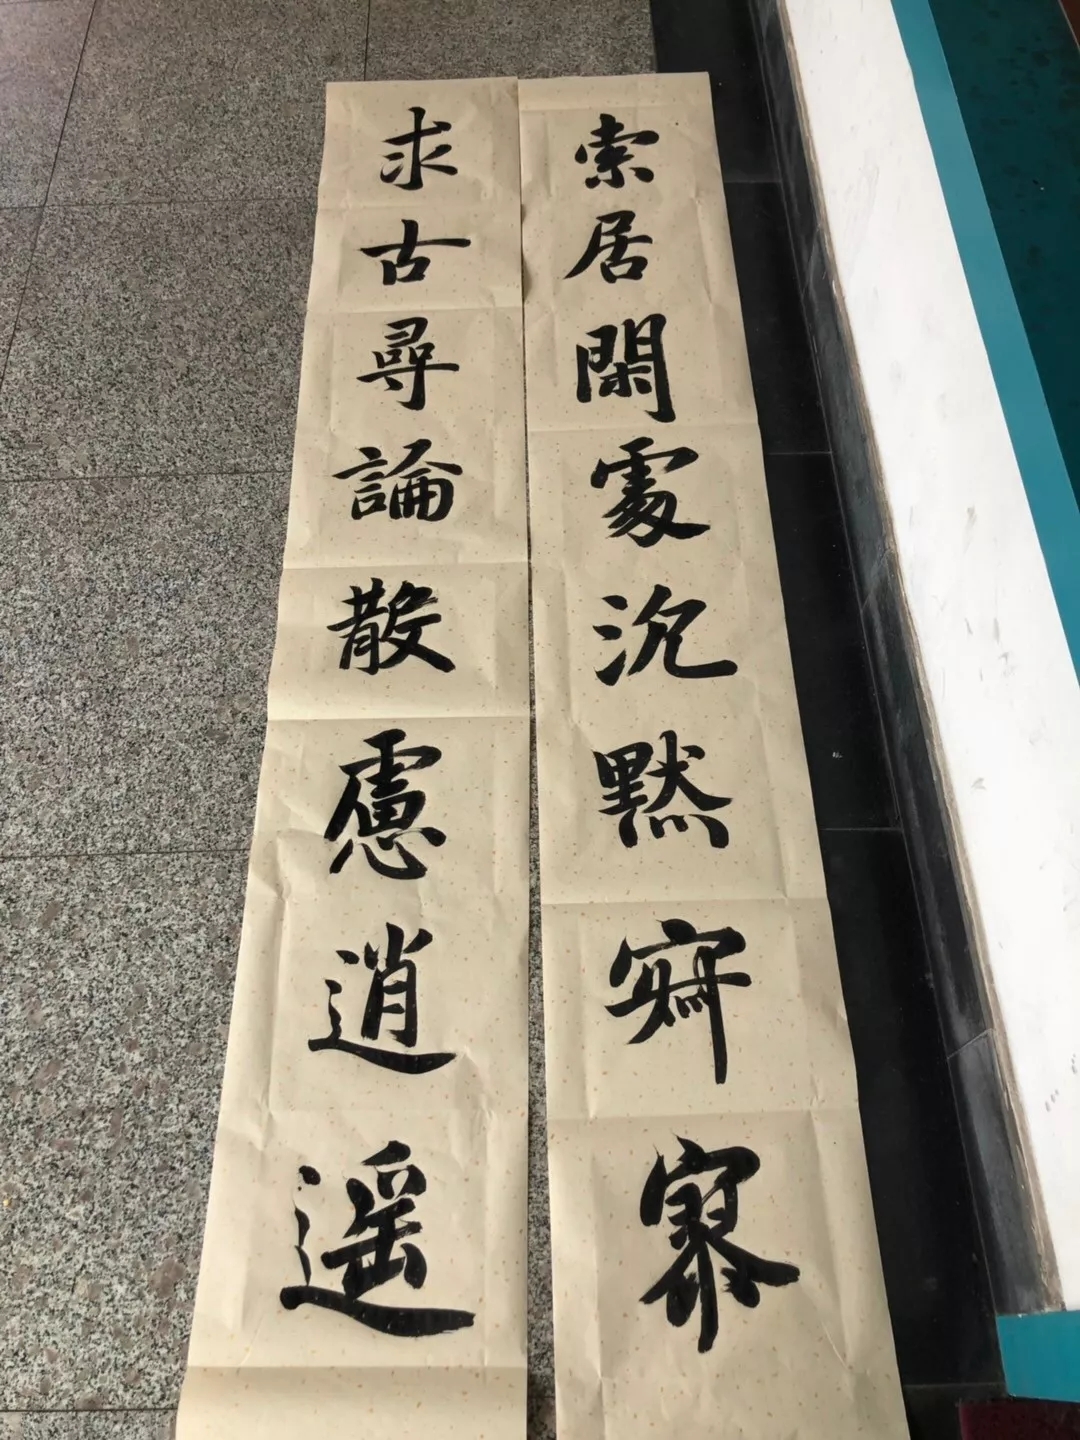 索居閑處沉默寂寥
求古尋論散慮逍遥